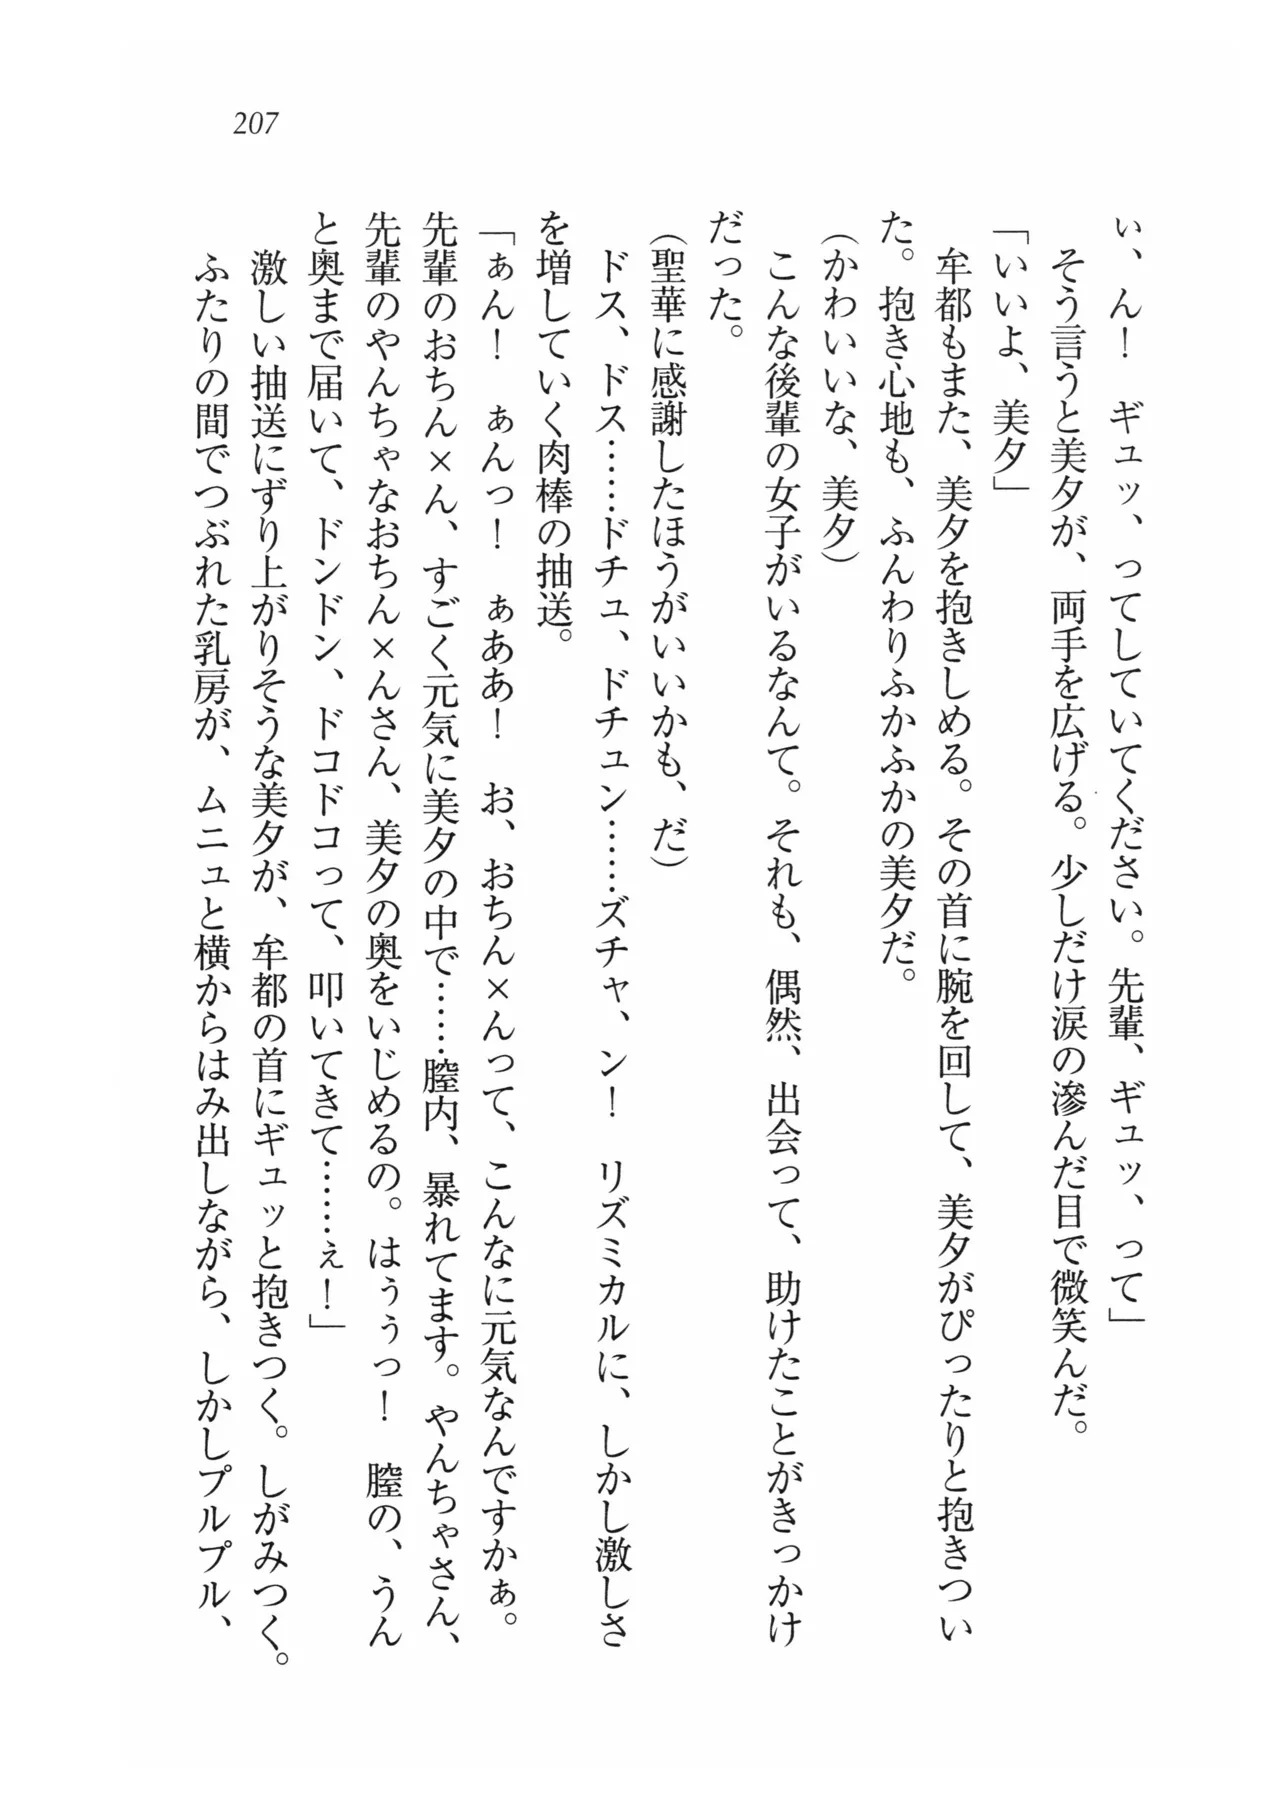 207
ぃ、ん！　ギュッ、ってしていてください。先輩、ギュッ、って」
そう言うと美夕が、両手を広げる。少しだけ涙の滲んだ目で微笑んだ。
「いいよ、美夕」
牟都もまた、美夕を抱きしめる。その首に腕を回して、美夕がぴったりと抱きつい
た。抱き心地も、ふんわりふかふかの美夕だ。
（かわいいな、美夕）
こんな後輩の女子がいるなんて。それも、偶然、出会って、助けたことがきっかけ
だった。
（聖華に感謝したほうがいいかも、だ）
ドス、ドス……ドチュ、ドチュン……ズチャ、ン！　リズミカルに、しかし激しさ
を増していく肉棒の抽送。
「ぁん！　ぁんっ！　ぁああ！　お、おちん×んって、こんなに元気なんですかぁ。
先輩のおちん×ん、すごく元気に美夕の中で……膣内、暴れてます。やんちゃさん、
先輩のやんちゃなおちん×んさん、美夕の奥をいじめるの。はぅぅっ！　膣の、うん
と奥まで届いて、ドンドン、ドコドコって、叩いてきて……ぇ！」
激しい抽送にずり上がりそうな美夕が、牟都の首にギュッと抱きつく。しがみつく。
ふたりの間でつぶれた乳房が、ムニュと横からはみ出しながら、しかしプルプル、